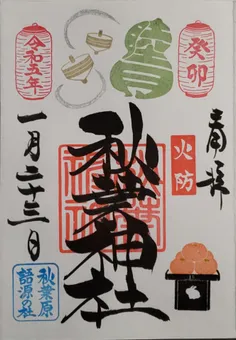 奉拝
癸卯
火防
秋葉神社
令和五年
一月二十三日
秋葉原
語源の社